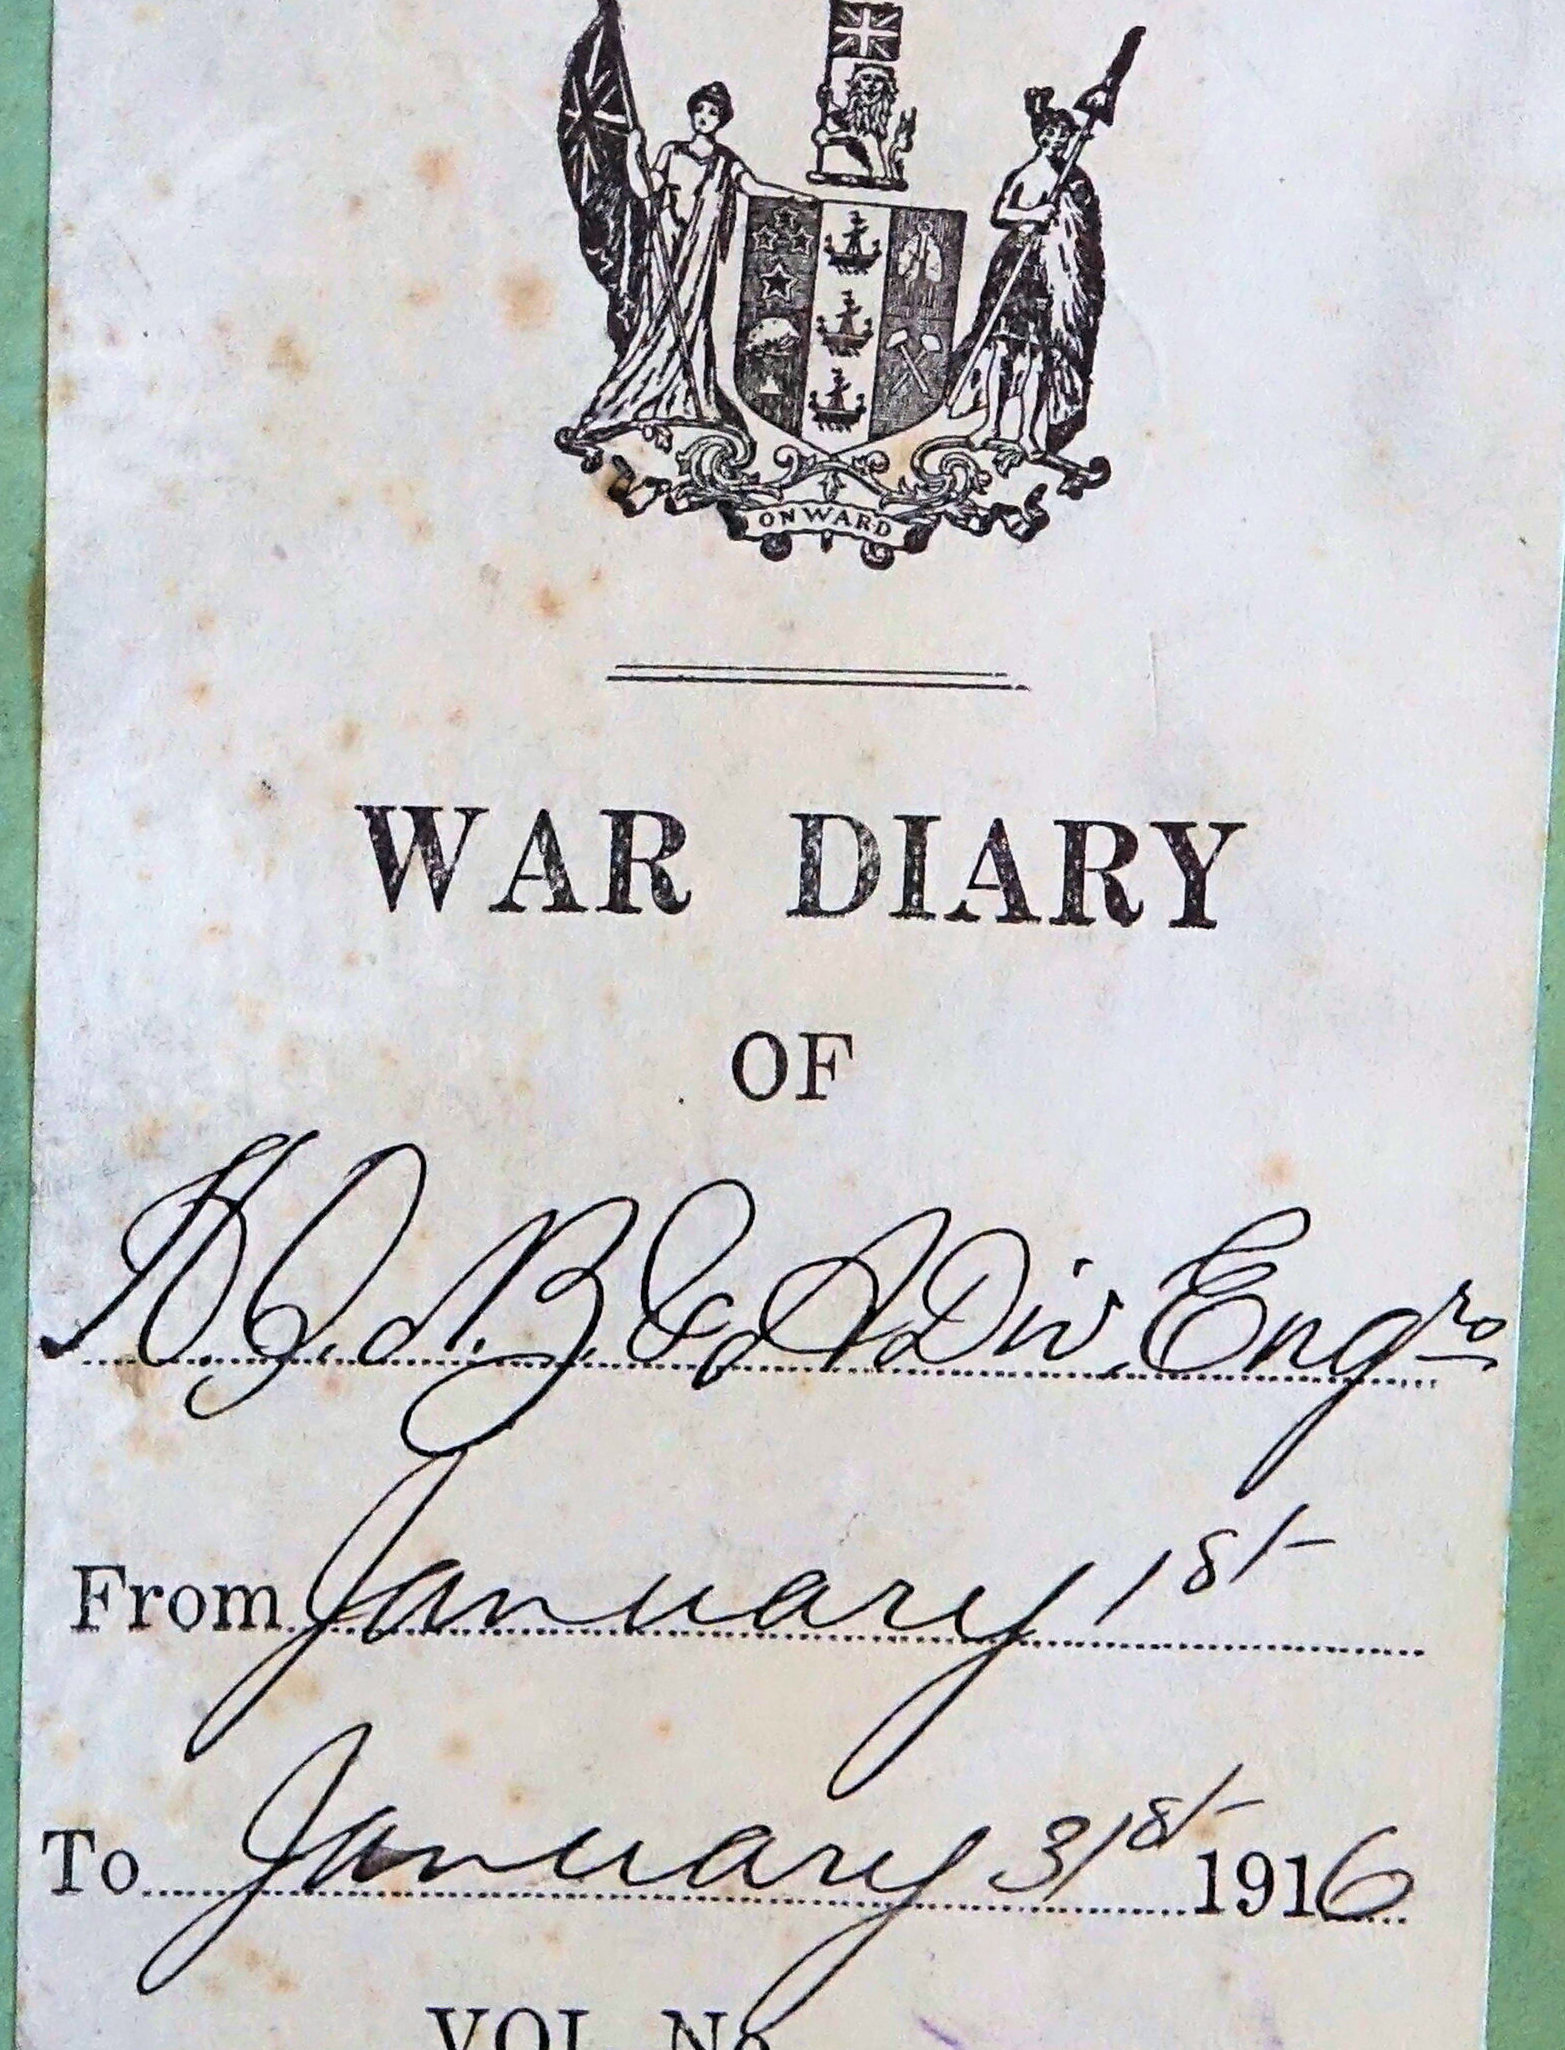 ONWARD
WAR DIARY
OF
H.Q. N.Z. & A Div. Engrs
From January 1st
To January 31st 1916
VOL. No.